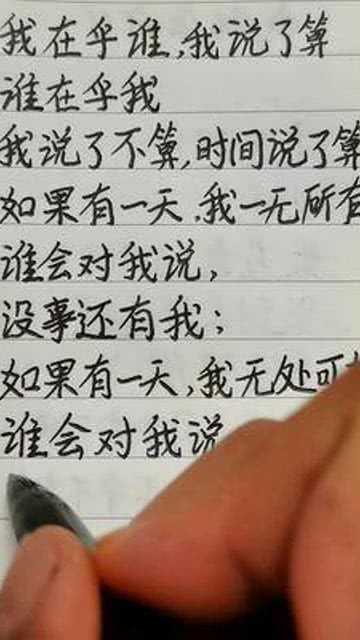 我在乎谁,我说了算
谁在乎我
我说了不算,时间说了算
如果有一天,我一无所有
谁会对我说,
没事还有我;
如果有一天,我无处可
谁会对我说